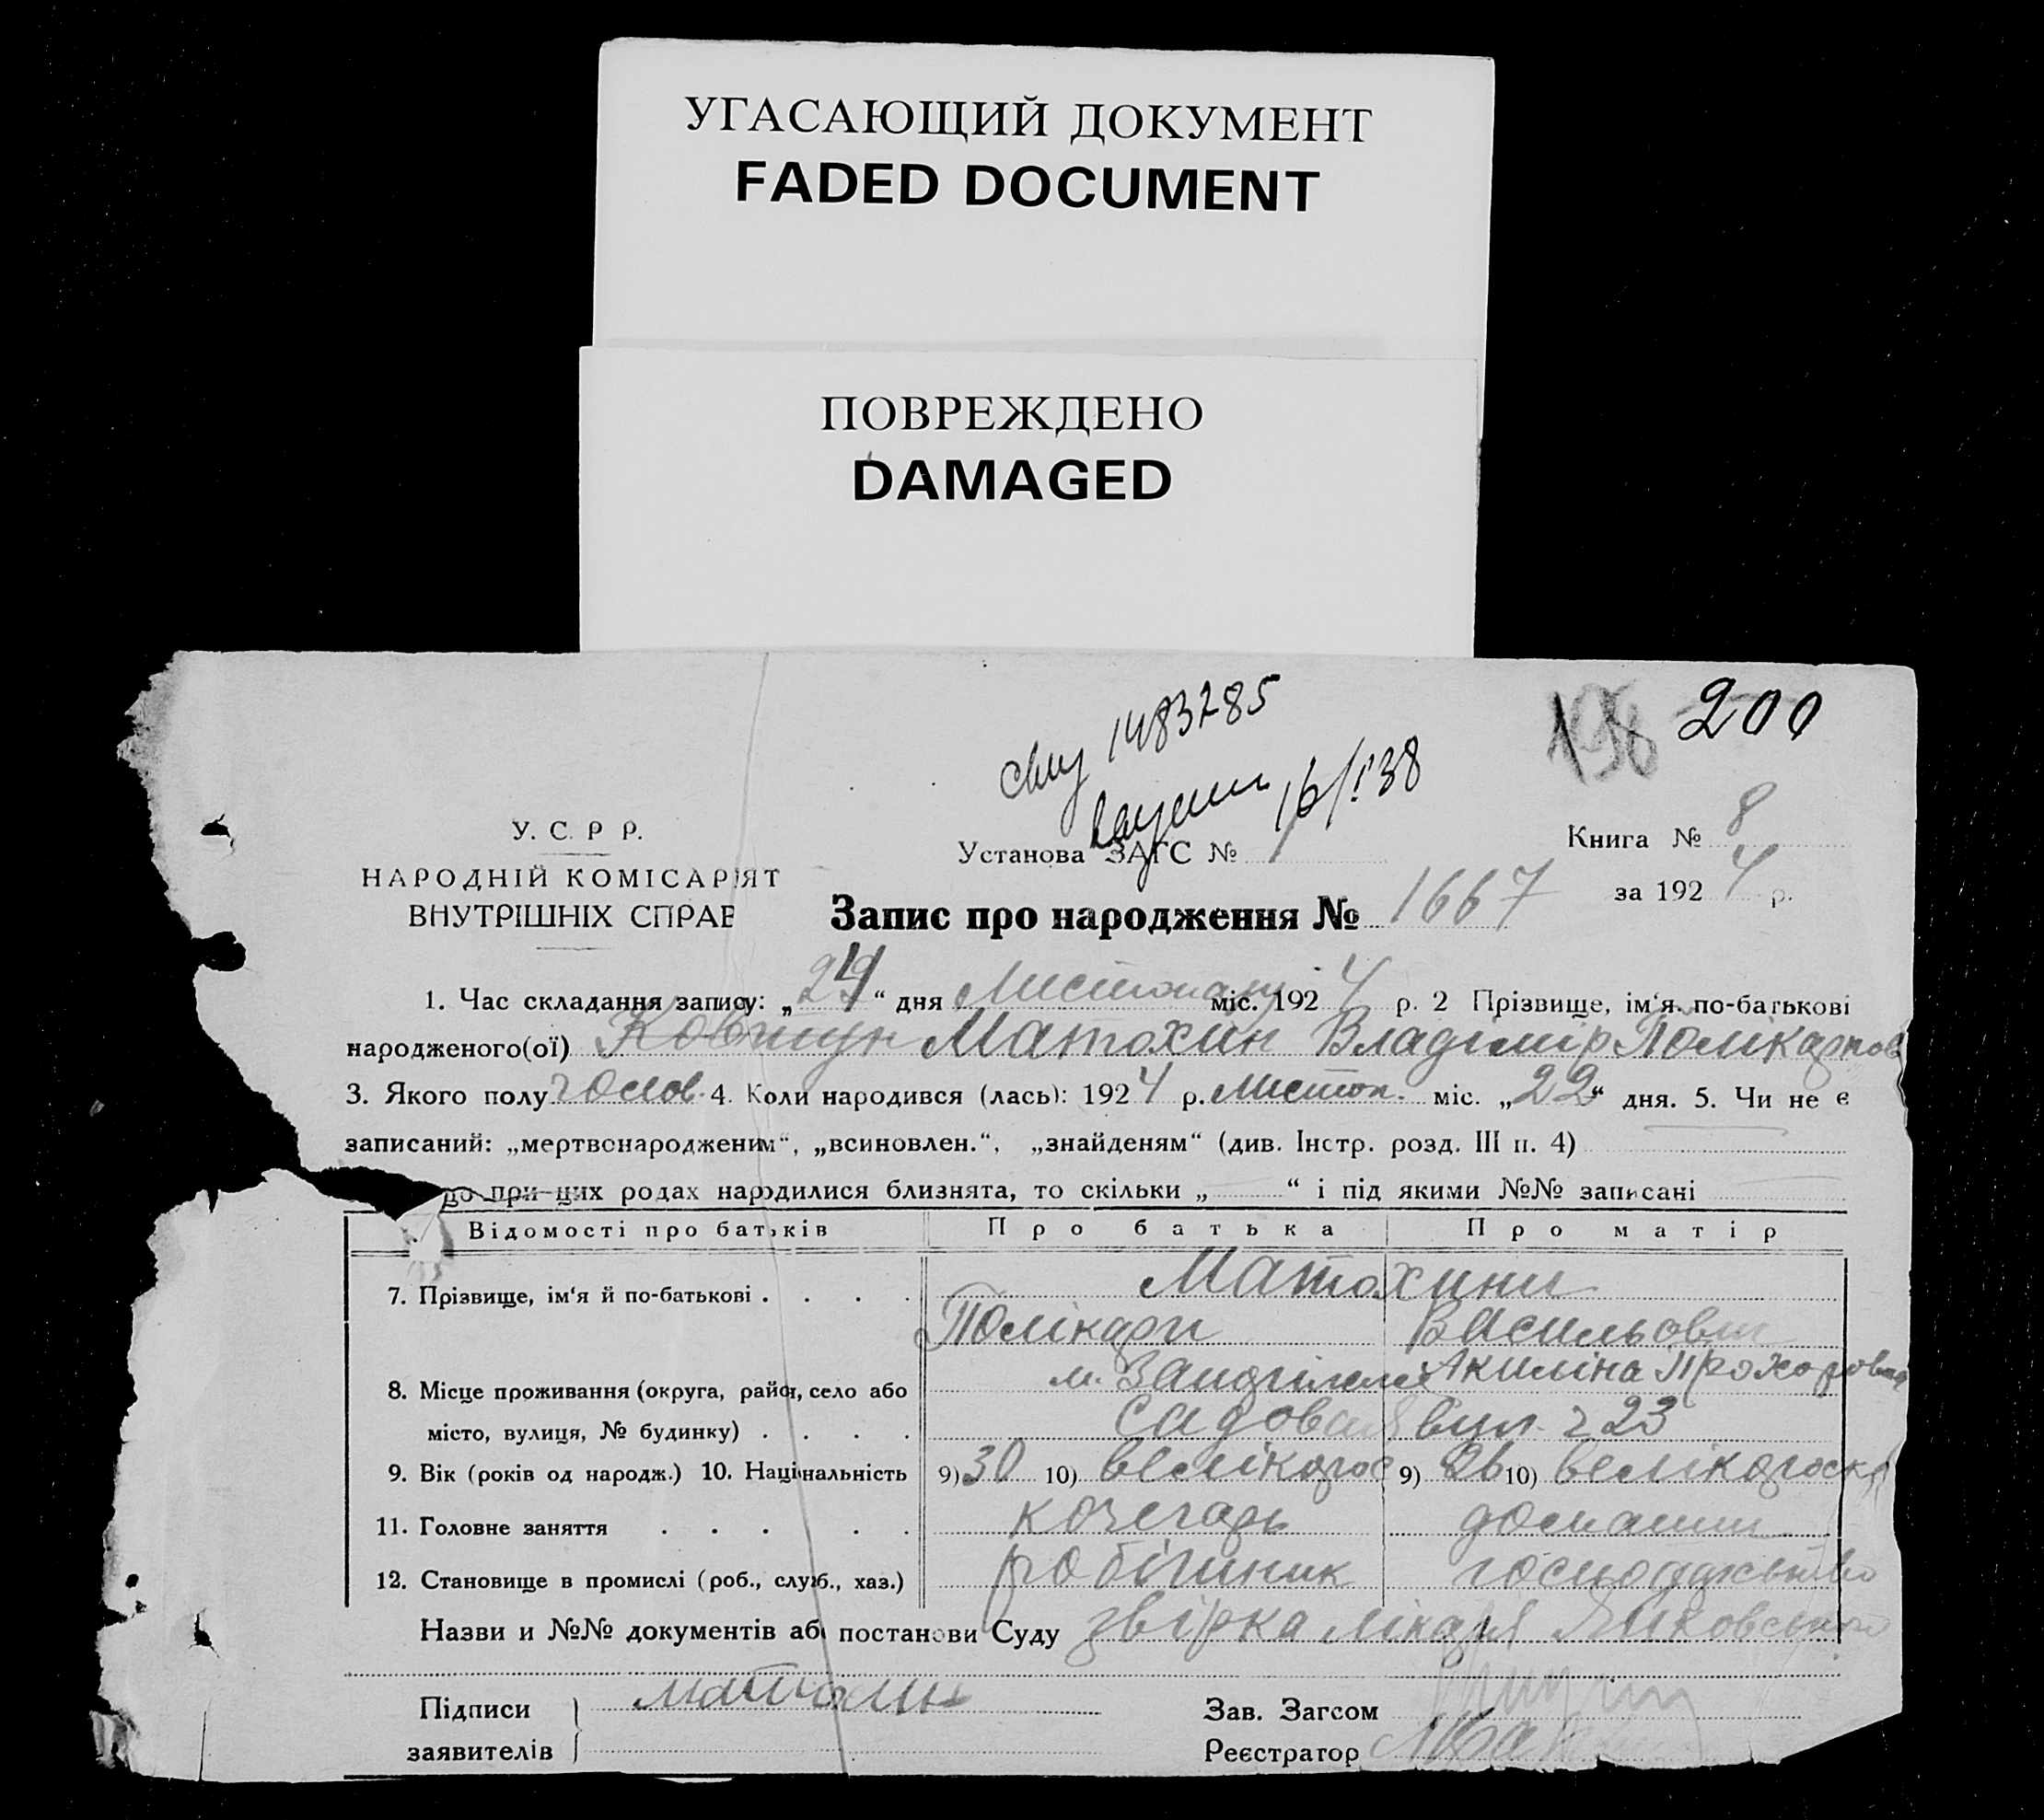 УГАСАЮЩИЙ ДОКУМЕНТ
FADED DOCUMENT
ПОВРЕЖДЕНО
DAMAGED
1483285
198 200
16/I 38
У. С. Р Р.
НАРОДНІЙ КОМІСАРІЯТ
ВНУТРІШНІХ СПРАВ
Установа ЗАГС №
Книга № 8
за 1924 р.
Запис про народження № 1667
1. Час складання запису: „24“ дня Листопаду міс. 1924 р. 2 Прізвище, ім‘я по-батькові
народженого(ої) Ковтун Матохин Владімір Полікарпов
3. Якого полу чолов. 4. Коли народився (лась): 1924 р. Листоп. міс. „22“ дня. 5. Чи не є
записаний: „мертвонародженим“, „всиновлен.“, „знайденям“ (див. Інстр. розд. III п. 4)
що при цих родах народилися близнята, то скільки „ “ і під якими №№ записані
Відомості про батьків Про батька Про матір
7. Прізвище, ім‘я й по-батькові . . . . Матохини
Полікарп Васильович
Акиліна Прохоровна
8. Місце проживання (округа, район, село або м.
місто, вулиця, № будинку) . . . . Садовая вул. ч 23
9. Вік (років од народж.) 10. Національність 9) 30 10) велікорос 9) 26 10) велікороска
11. Головне заняття . . . . . кочегарь домашн
12. Становище в промислі (роб., служб., хаз.) робітник господарство
Назви и №№ документів або постанови Суду звірка лікаря
Підписи Матохин Зав. Загсом
заявителів Реєстратор